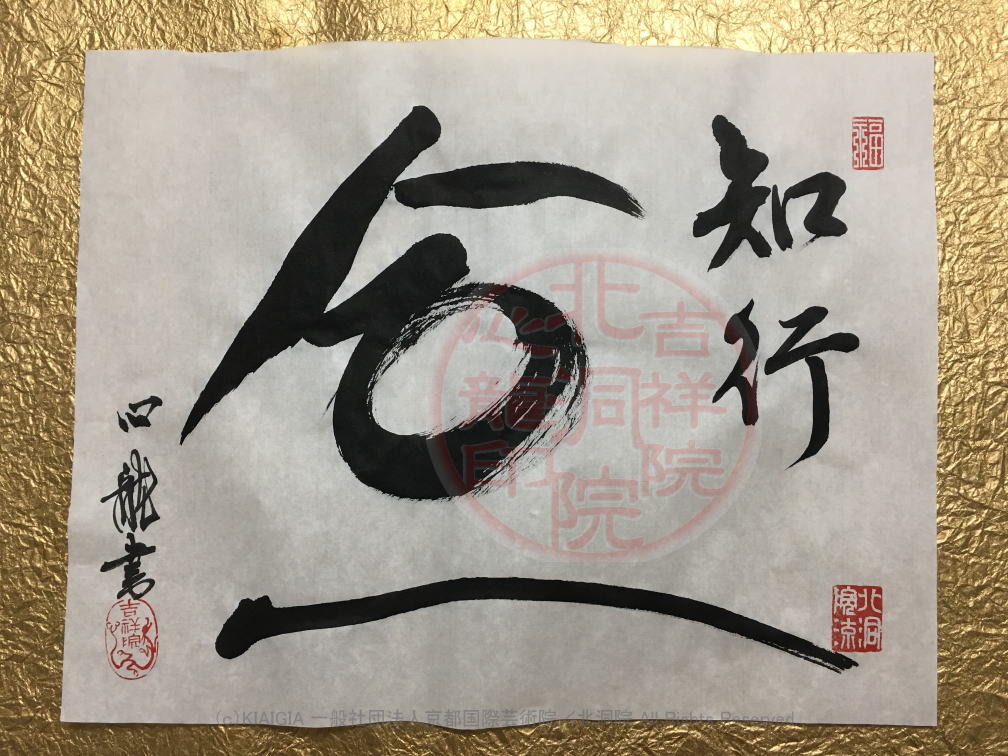 知行
合
一
心龍書
吉祥院
北洞
院流
吉祥院
北洞院
心龍印
(c)KIAIGIA 一般社団法人京都国際芸術院／北洞院 All Rights Reserved.